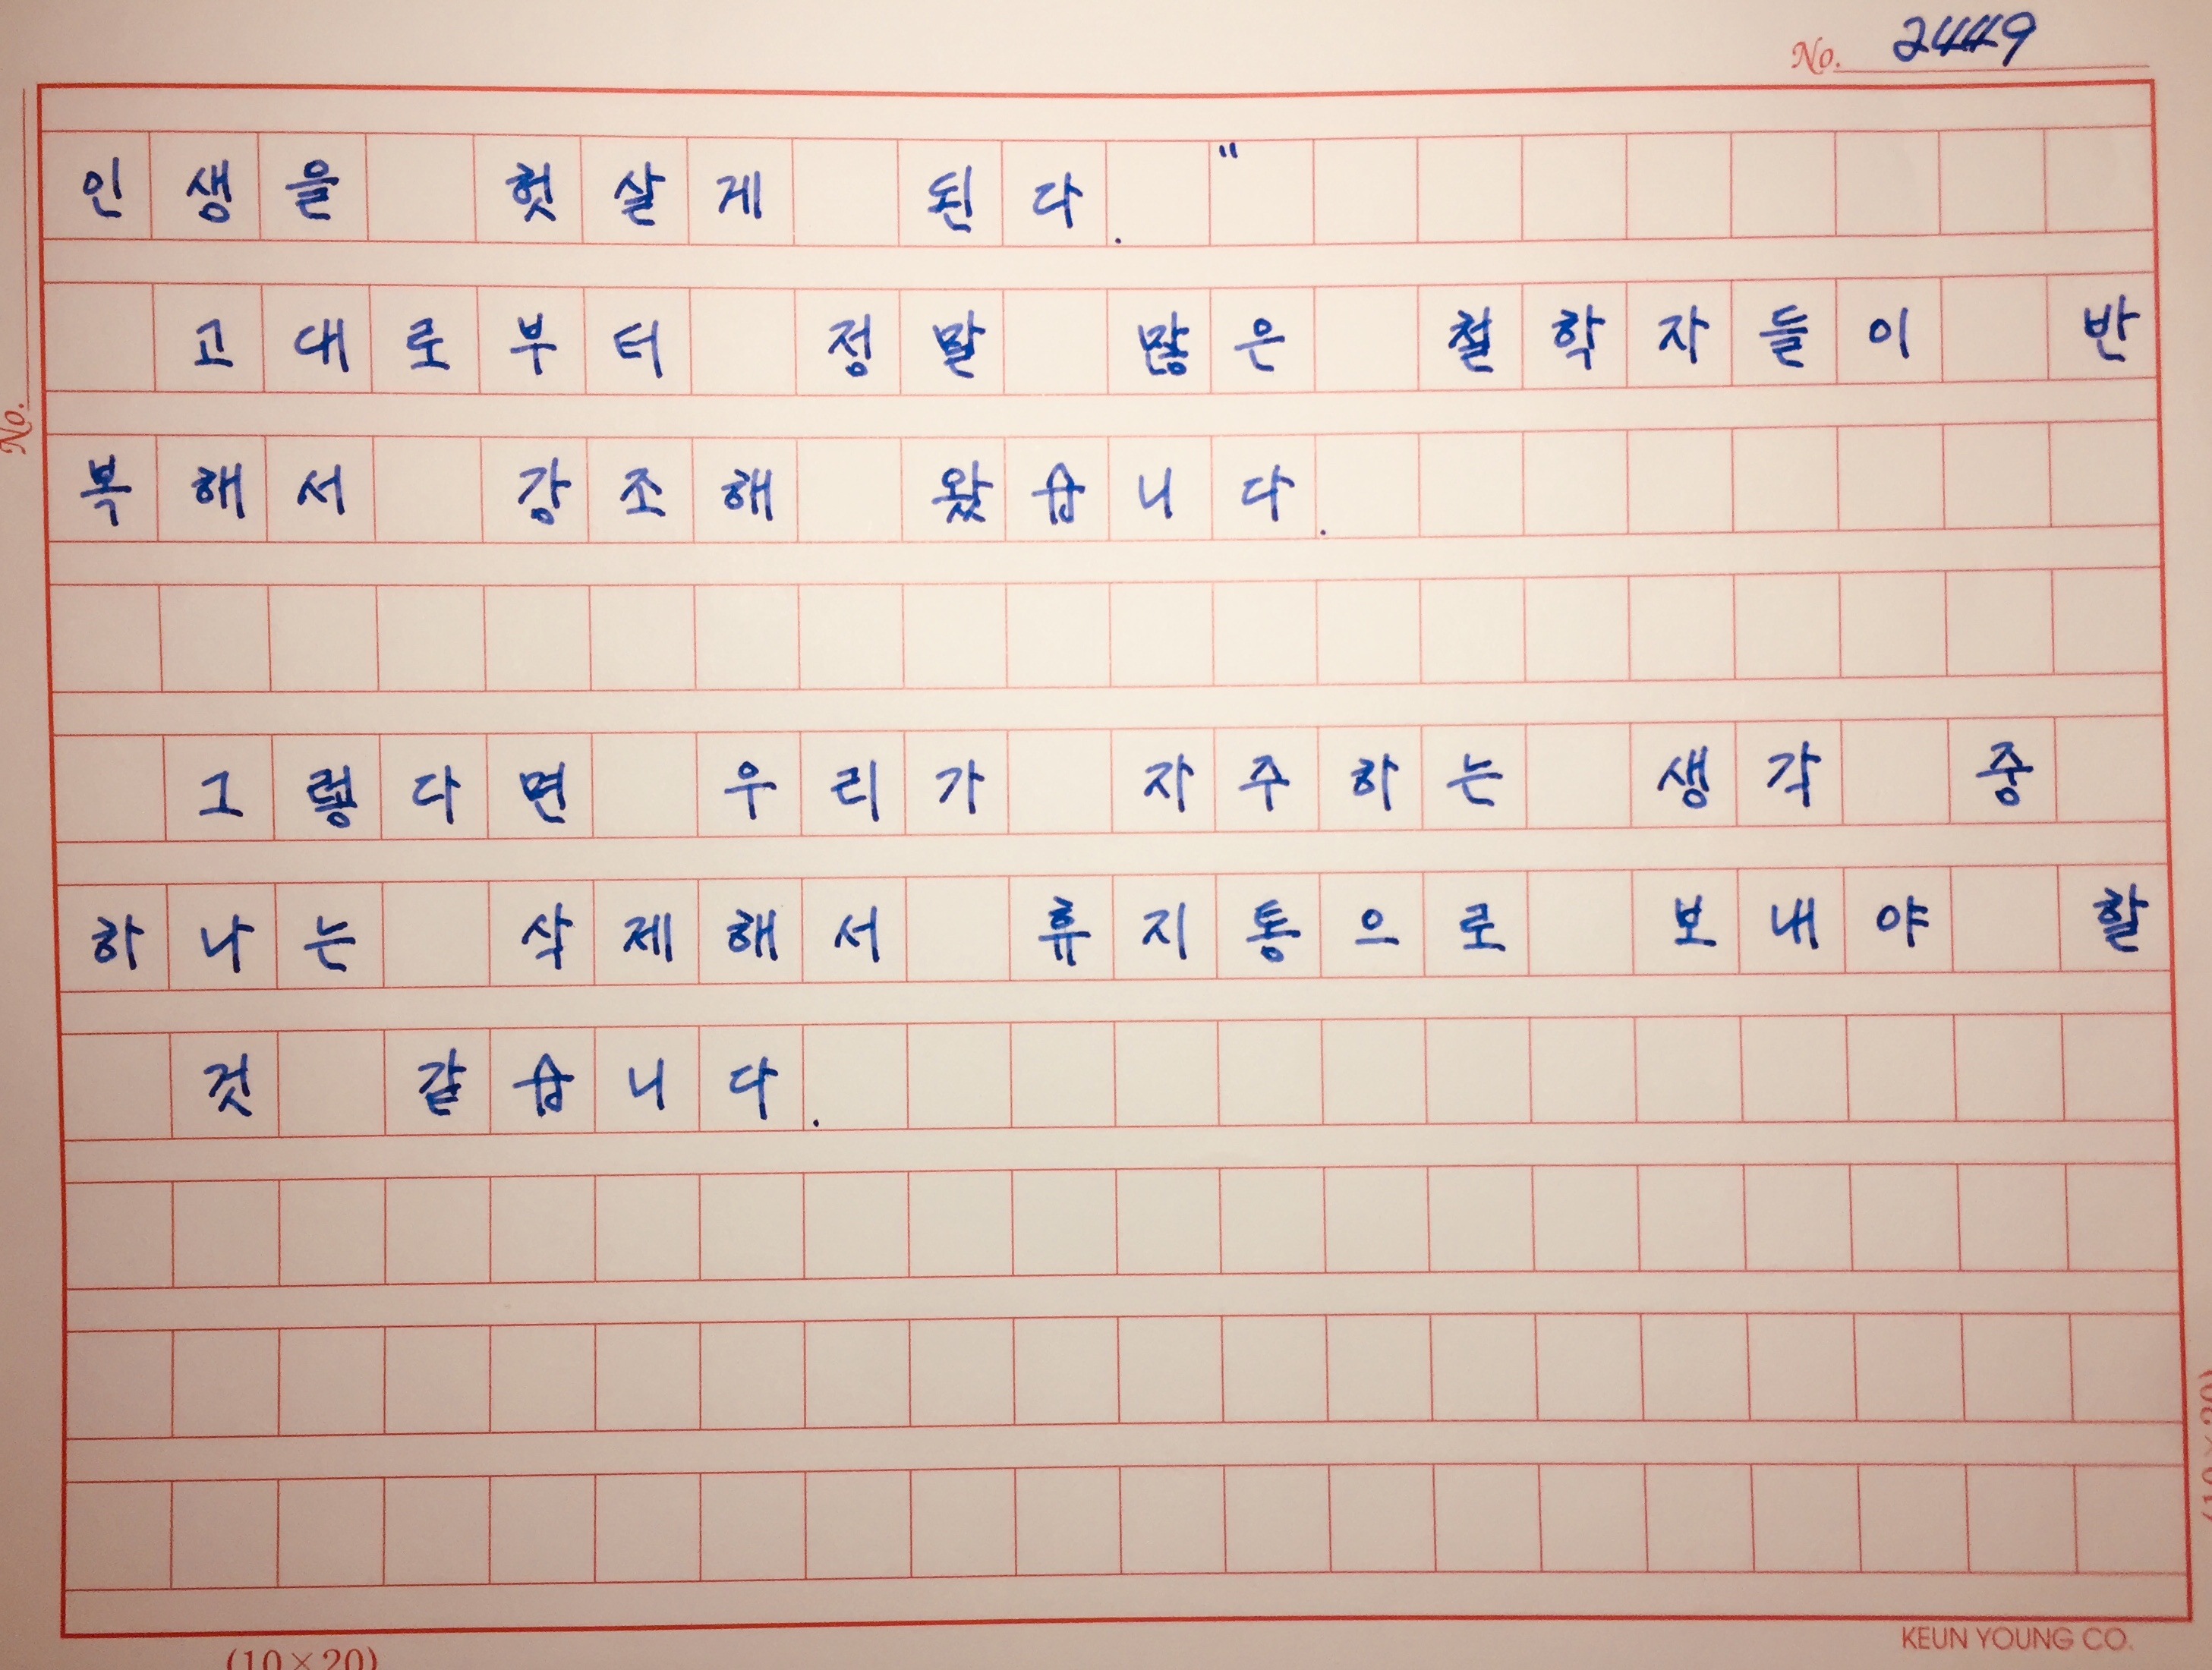 No. 2449
인생을 헛살게 된다."
고대로부터 정말 많은 철학자들이 반
복해서 강조해 왔습니다.
그렇다면 우리가 자주하는 생각 중
하나는 삭제해서 휴지통으로 보내야 할
것 같습니다.
No.
(10×20)
(10×20)
KEUN YOUNG CO.